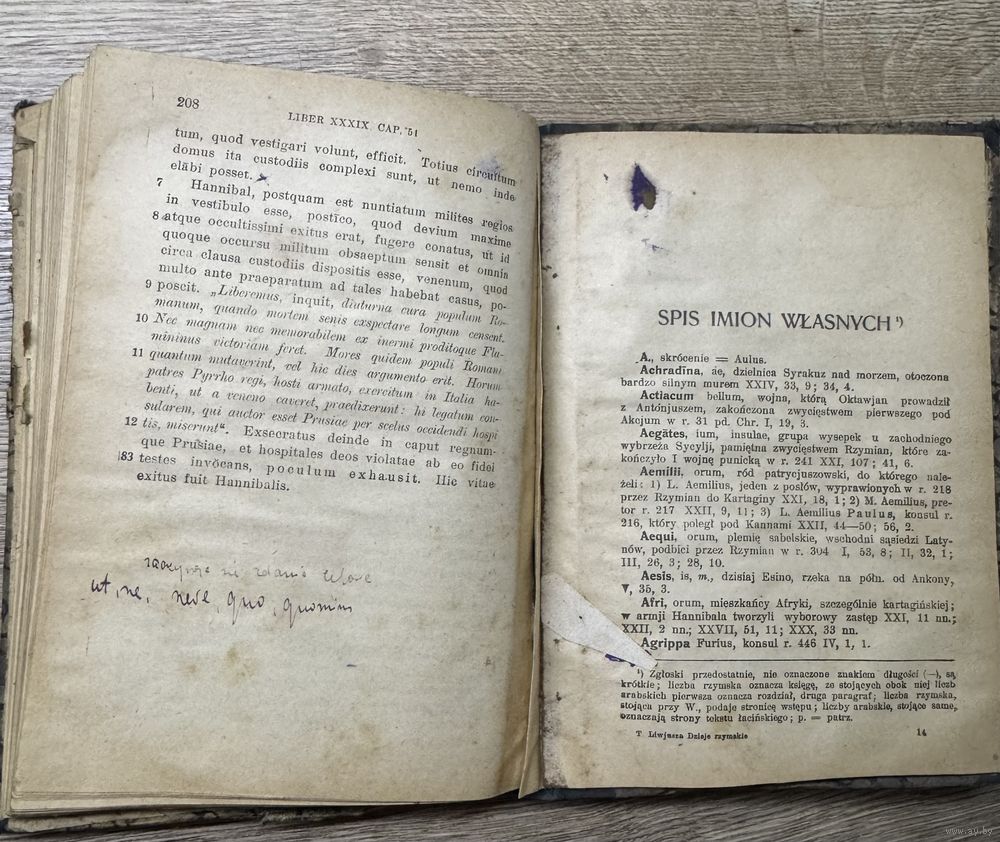 208
LIBER XXXIX CAP. 51
tum, quod vestigari volunt, efficit. Totius circuitum
domus ita custodiis complexi sunt, ut nemo inde
elābi posset.
7 Hannibal, postquam est nuntiatum milites regios
in vestibulo esse, postīco, quod devium maxime
8 atque occultissimi exitus erat, fugere conatus, ut id
quoque occursu militum obsaeptum sensit et omnia
circa clausa custodiis dispositis esse, venenum, quod
multo ante praeparatum ad tales habebat casus, po-
9 poscit. „Liberemus, inquit, diuturna cura populum Ro-
manum, quando mortem senis exspectare longum censent.
10 Nec magnam nec memorabilem ex inermi proditoque Fla-
mininus victoriam feret. Mores quidem populi Romani
11 quantum mutaverint, vel hic dies argumento erit. Horum
patres Pyrrho regi, hosti armato, exercitum in Italia ha-
benti, ut a veneno caveret, praedixerunt: hi legatum con-
sularem, qui auctor esset Prusiae per scelus occidendi hospi
12 tis, miserunt“. Exsecratus deinde in caput regnum-
que Prusiae, et hospitales deos violatae ab eo fidei
183 testes invŏcans, poculum exhausit. Hic vitae
exitus fuit Hannibalis.
ut, ne, neve, quo, quominus
SPIS IMION WŁASNYCH ¹)
A., skrócenie = Aulus.
Achradīna, ae, dzielnica Syrakuz nad morzem, otoczona
bardzo silnym murem XXIV, 33, 9; 34, 4.
Actiacum bellum, wojna, którą Oktawjan prowadził
z Antonjuszem, zakończona zwycięstwem pierwszego pod
Akcjum w r. 31 pd. Chr. I, 19, 3.
Aegātes, ium, insulae, grupa wysepek u zachodniego
wybrzeża Sycylji, pamiętna zwycięstwem Rzymian, które za-
kończyło I wojnę punicką w r. 241 XXI, 107; 41, 6.
Aemilii, orum, ród patrycjuszowski, do którego nale-
żeli: 1) L. Aemilius, jeden z posłów, wyprawionych w r. 218
przez Rzymian do Kartaginy XXI, 18, 1; 2) M. Aemilius, pre-
tor r. 217 XXII, 9, 11; 3) L. Aemilius Paulus, konsul r.
216, który poległ pod Kannami XXII, 44—50; 56, 2.
Aequi, orum, plemię sabelskie, wschodni sąsiedzi Laty-
nów, podbici przez Rzymian w r. 304 I, 53, 8; II, 32, 1;
III, 26, 3; 28, 10.
Aesis, is, m., dzisiaj Esino, rzeka na półn. od Ankony,
V, 35, 3.
Afri, orum, mieszkańcy Afryki, szczególnie kartagińskiej;
w armji Hannibala tworzyli wyborowy zastęp XXI, 11 nn.;
XXII, 2 nn.; XXVII, 51, 11; XXX, 33 nn.
Agrippa Furius, konsul r. 446 IV, 1, 1.
¹) Zgłoski przedostatnie, nie oznaczone znakiem długości (—), są
krótkie; liczba rzymska oznacza księgę, ze stojących obok niej liczb
arabskich pierwsza oznacza rozdział, druga paragraf; liczba rzymska,
stojąca przy W., podaje stronicę wstępu; liczby arabskie, stojące same,
oznaczają strony tekstu łacińskiego; p. = patrz.
T Liwjusza Dzieje rzymskie
14
www.ay.by